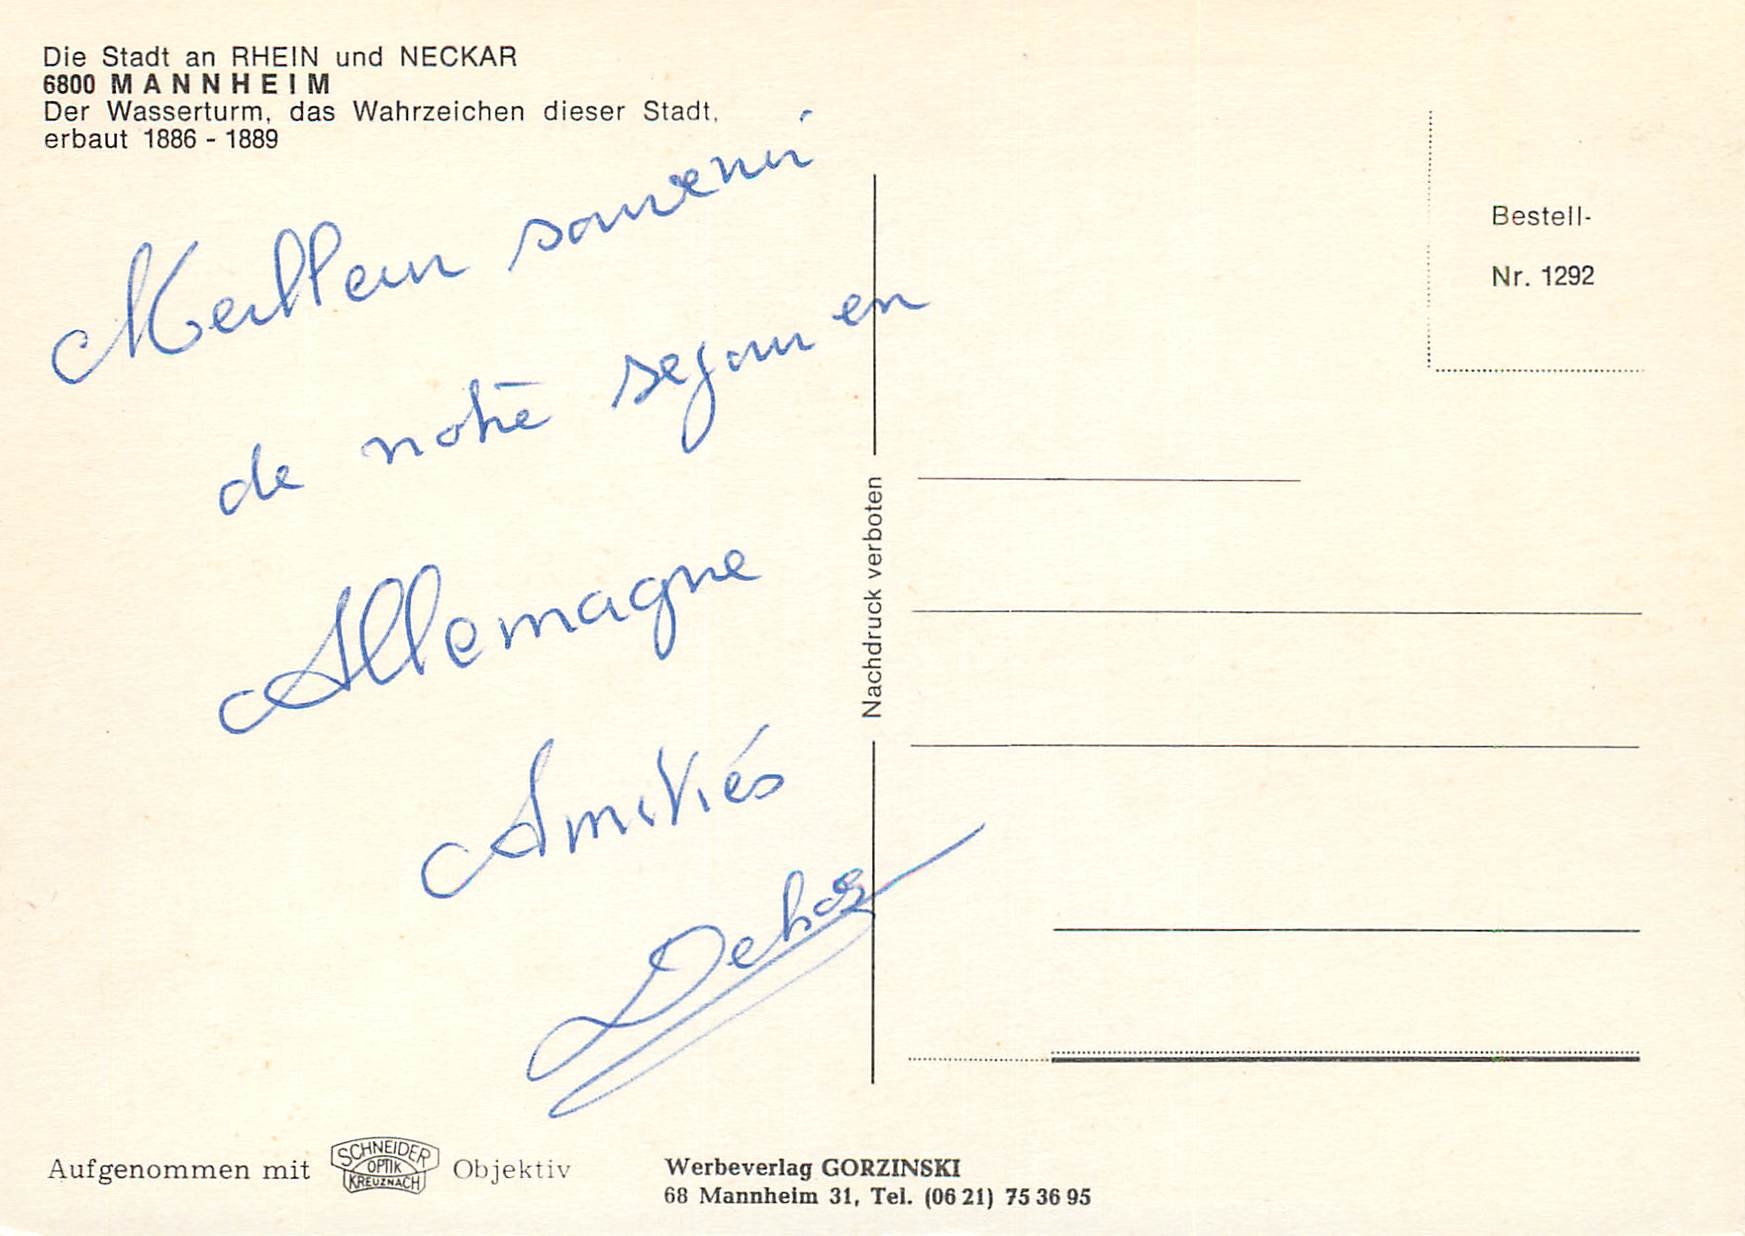 Die Stadt an RHEIN und NECKAR
6800 MANNHEIM
Der Wasserturm, das Wahrzeichen dieser Stadt,
erbaut 1886 - 1889
Meilleur souvenir
de notre sejour en
Allemagne
Amitiés
Nachdruck verboten
Bestell-
Nr. 1292
Aufgenommen mit SCHNEIDER OPTIK KREUZNACH Objektiv
Werbeverlag GORZINSKI
68 Mannheim 31, Tel. (06 21) 75 36 95